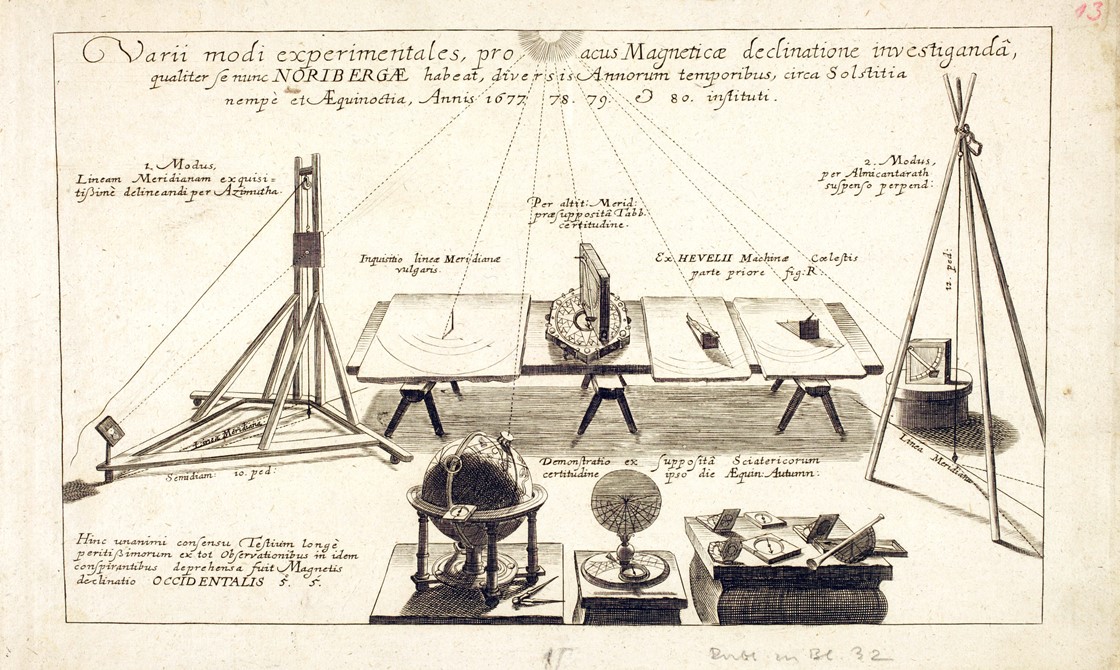 13
Varii modi experimentales, pro acus Magneticæ declinatione investigandâ,
qualiter se nunc NORIBERGÆ habeat, diversis Annorum temporibus, circa Solstitia
nempè et Æquinoctia, Annis 1677 78. 79. & 80. instituti.
1. Modus,
Lineam Meridianam exquisi=
tißimè delineandi per Azimutha.
2. Modus,
per Almicantarath
suspenso perpend:
Per altit: Merid:
præsuppositâ Tabb.
certitudine.
Inquisitio lineæ Meridianæ
vulgaris.
Ex HEVELII Machinæ Cœlestis
parte priore fig: R.
10. ped:
Linea Meridiana
Semidiam: 10. ped:
Linea Meridiana
Demonstratio ex suppositâ Sciatericorum
certitudine ipso die Æquin: Autumn:
Hinc unanimi consensu Testium longè
peritißimorum ex tot Observationibus in idem
conspirantibus deprehensa fuit Magnetis
declinatio OCCIDENTALIS 5. 5.
Bl. 32